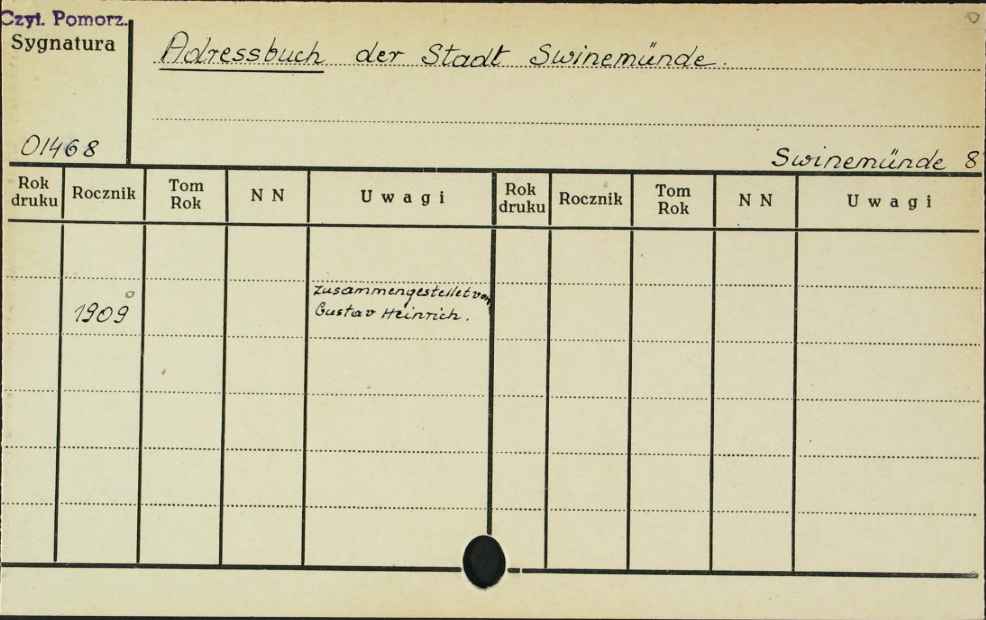 Czyt. Pomorz.
Sygnatura
Adressbuch der Stadt Swinemünde.
01468
Swinemünde 8
Rok druku Rocznik Tom Rok N N Uwagi Rok druku Rocznik Tom Rok N N Uwagi
zusammengestellet von
1909 Gustav Heinrich.